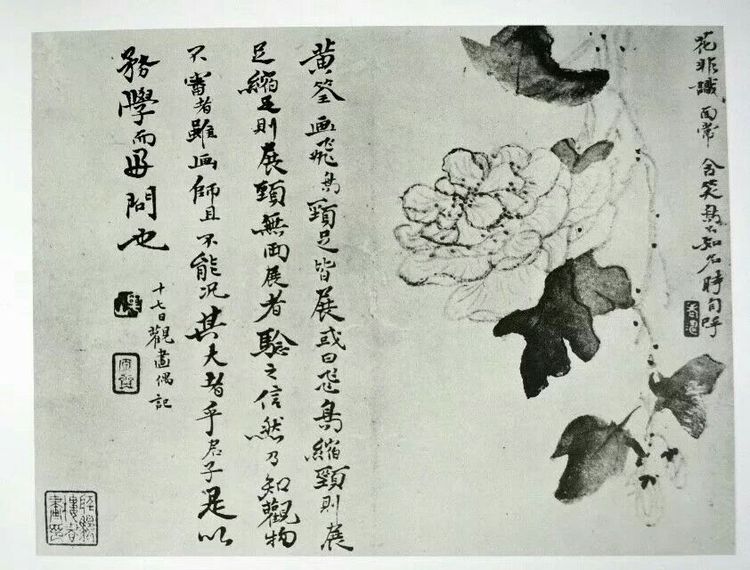 花非識面常含笑鳥不知名時自呼
黄筌画飛鳥頸足皆展或曰飛鳥縮頸則展
足縮足則展頸無両展者驗之信然乃知觀物
不審者雖画師且不能况其大者乎君子是以
務學而好問也
十七日觀畫偶記